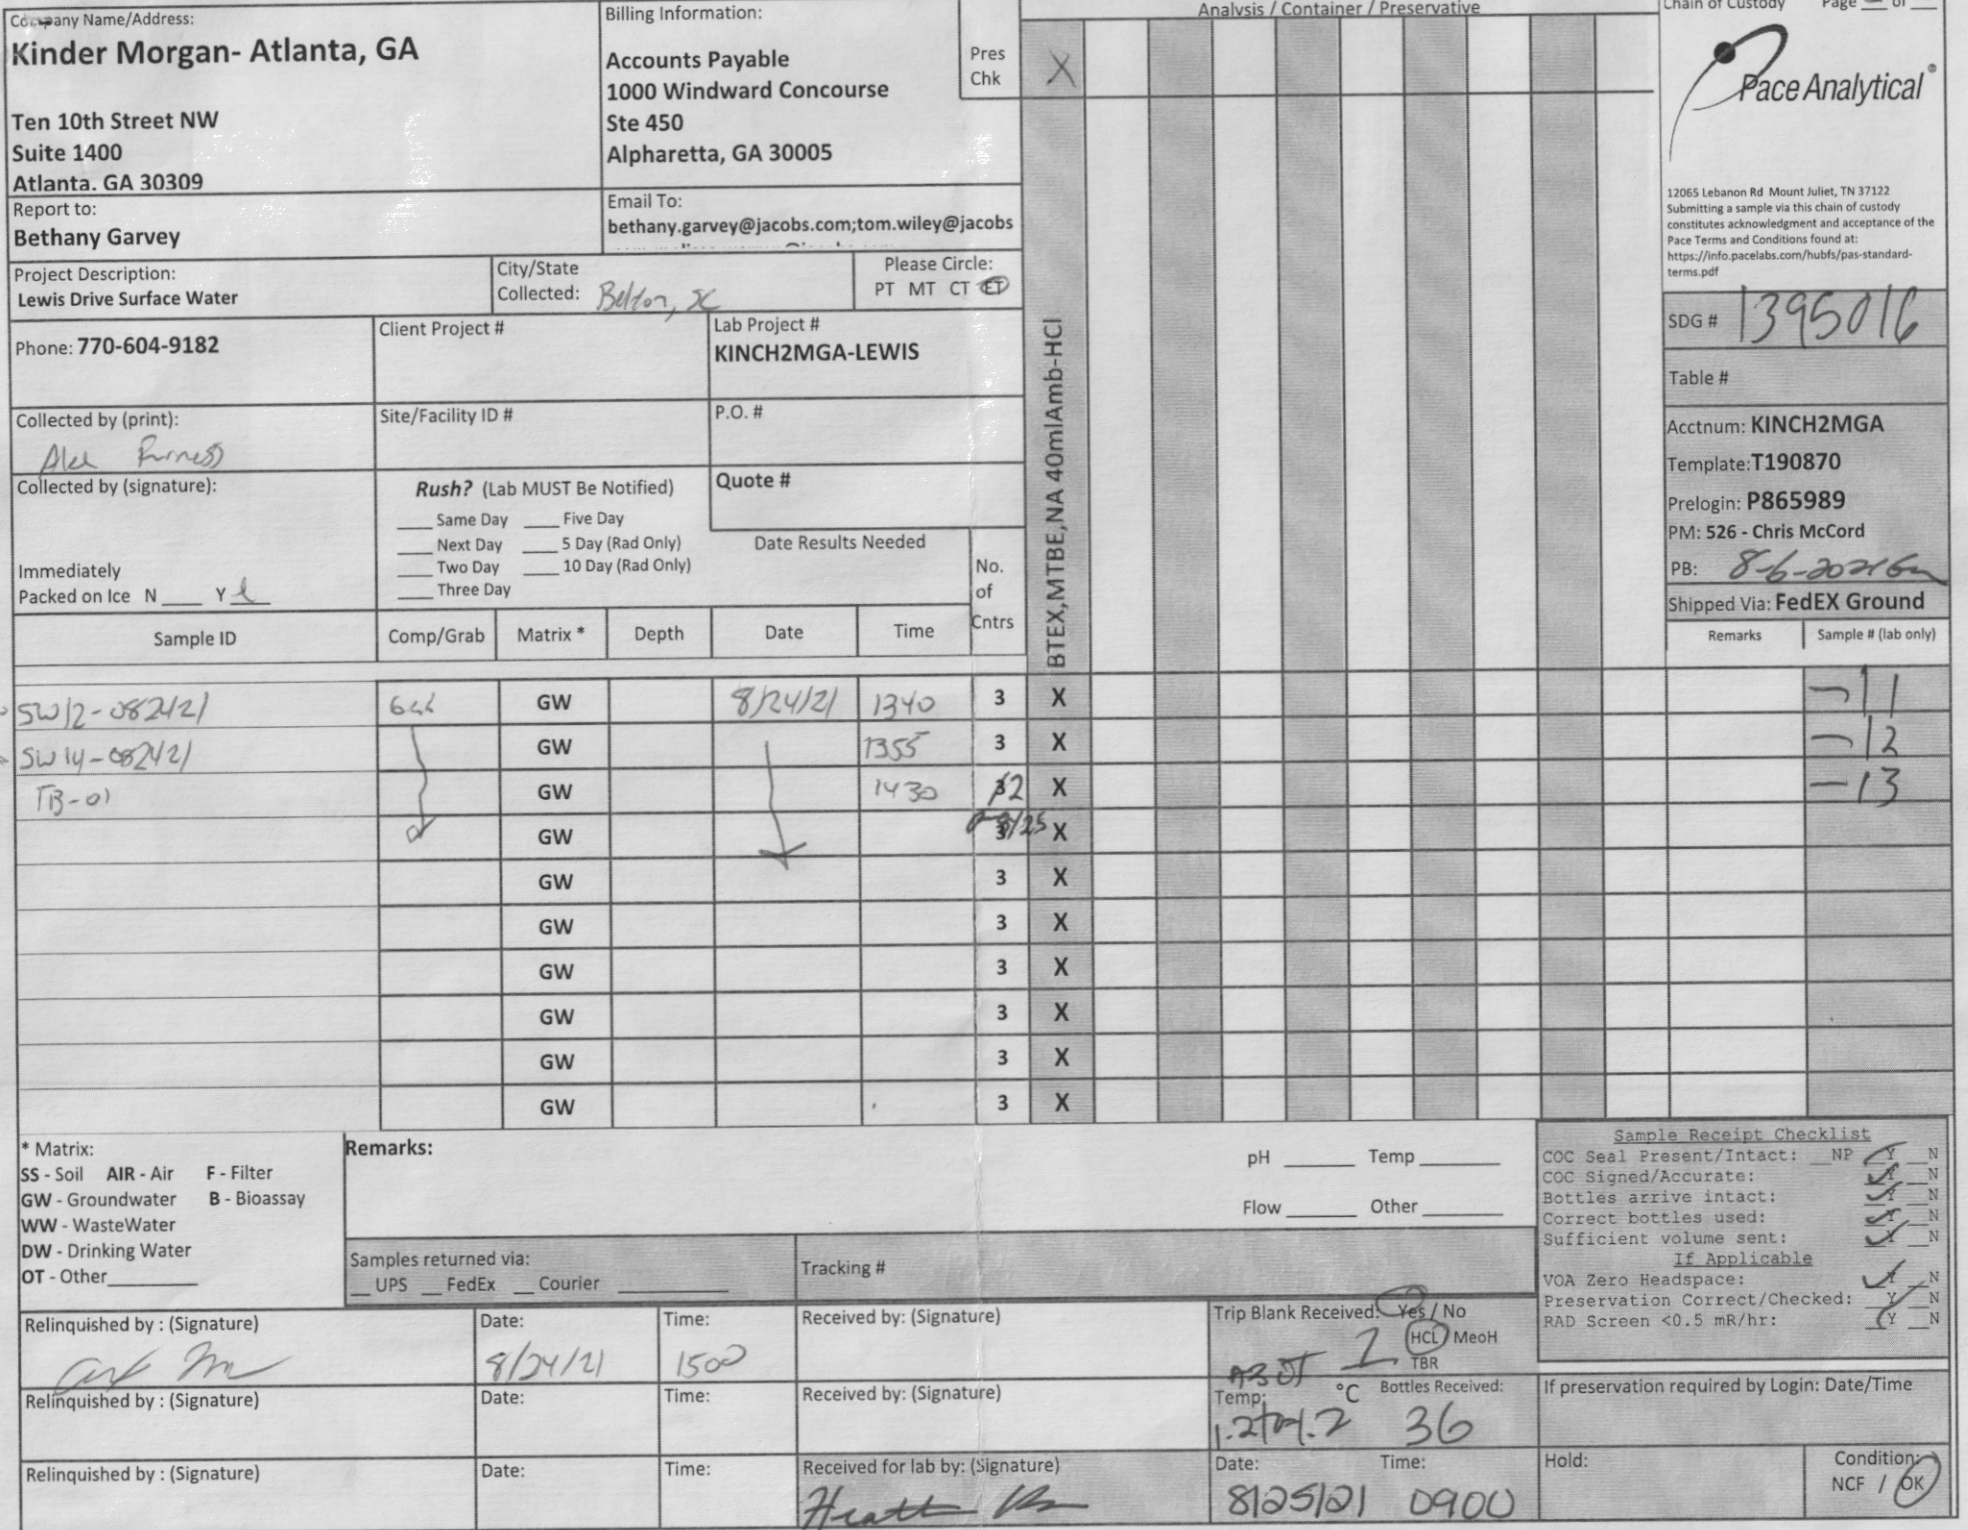 Company Name/Address:
Kinder Morgan- Atlanta, GA
Ten 10th Street NW
Suite 1400
Atlanta. GA 30309
Billing Information:
Accounts Payable
1000 Windward Concourse
Ste 450
Alpharetta, GA 30005
Pres
Chk
X
Analysis / Container / Preservative
Chain of Custody Page ___ of ___
Pace Analytical®
12065 Lebanon Rd Mount Juliet, TN 37122
Submitting a sample via this chain of custody
constitutes acknowledgment and acceptance of the
Pace Terms and Conditions found at:
https://info.pacelabs.com/hubfs/pas-standard-
terms.pdf
Report to:
Bethany Garvey
Email To:
bethany.garvey@jacobs.com;tom.wiley@jacobs
Project Description:
Lewis Drive Surface Water
City/State
Collected: Belton, SC
Please Circle:
PT MT CT ET
SDG # 1395016
Phone: 770-604-9182
Client Project #
Lab Project #
KINCH2MGA-LEWIS
Table #
Collected by (print):
Site/Facility ID #
P.O. #
Acctnum: KINCH2MGA
Template:T190870
Prelogin: P865989
PM: 526 - Chris McCord
PB: 8-6-2021
Shipped Via: FedEX Ground
Collected by (signature):
Rush? (Lab MUST Be Notified)
___ Same Day ___ Five Day
___ Next Day ___ 5 Day (Rad Only)
___ Two Day ___ 10 Day (Rad Only)
___ Three Day
Quote #
Date Results Needed
Immediately
Packed on Ice N ___ Y ___
No.
of
Cntrs
BTEX,MTBE,NA 40mlAmb-HCl
Sample ID Comp/Grab Matrix * Depth Date Time Remarks Sample # (lab only)
SW12-082421 GW 8/24/21 1340 3 X -11
SW14-082421 GW 1355 3 X -12
TB-01 GW 1430 3 2 X -13
GW 3 8/25 X
GW 3 X
GW 3 X
GW 3 X
GW 3 X
GW 3 X
GW 3 X
* Matrix:
SS - Soil AIR - Air F - Filter
GW - Groundwater B - Bioassay
WW - WasteWater
DW - Drinking Water
OT - Other
Remarks:
pH ___ Temp ___
Flow ___ Other ___
Samples returned via:
__ UPS __ FedEx __ Courier
Tracking #
Sample Receipt Checklist
COC Seal Present/Intact: __NP __Y __N
COC Signed/Accurate: __Y __N
Bottles arrive intact: __Y __N
Correct bottles used: __Y __N
Sufficient volume sent: __Y __N
If Applicable
VOA Zero Headspace: __Y __N
Preservation Correct/Checked: __Y __N
RAD Screen <0.5 mR/hr: __Y __N
Relinquished by : (Signature)
Date:
8/24/21
Time:
1500
Received by: (Signature)
Trip Blank Received: Yes / No
1 HCL MeoH
TBR
Relinquished by : (Signature)
Date:
Time:
Received by: (Signature)
Temp: °C
Bottles Received:
36
If preservation required by Login: Date/Time
Relinquished by : (Signature)
Date:
Time:
Received for lab by: (Signature)
Date:
8/25/21
Time:
0900
Hold:
Condition:
NCF / OK